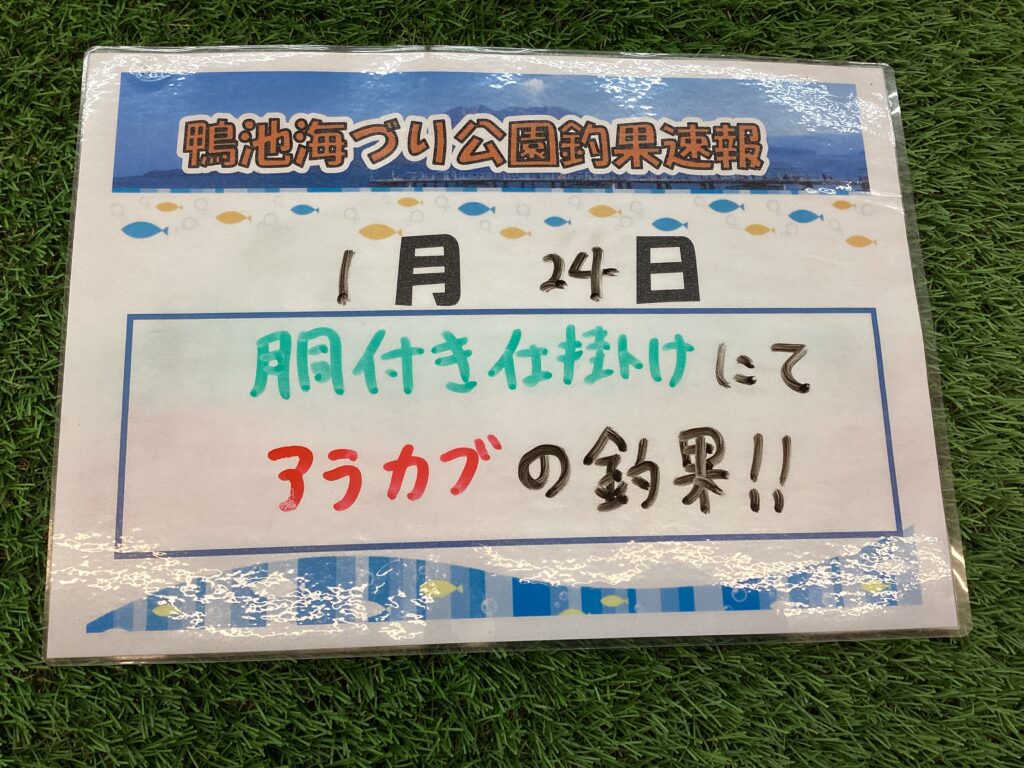 鴨池海づり公園釣果速報
1月 24日
胴付き仕掛けにて
アラカブの釣果!!